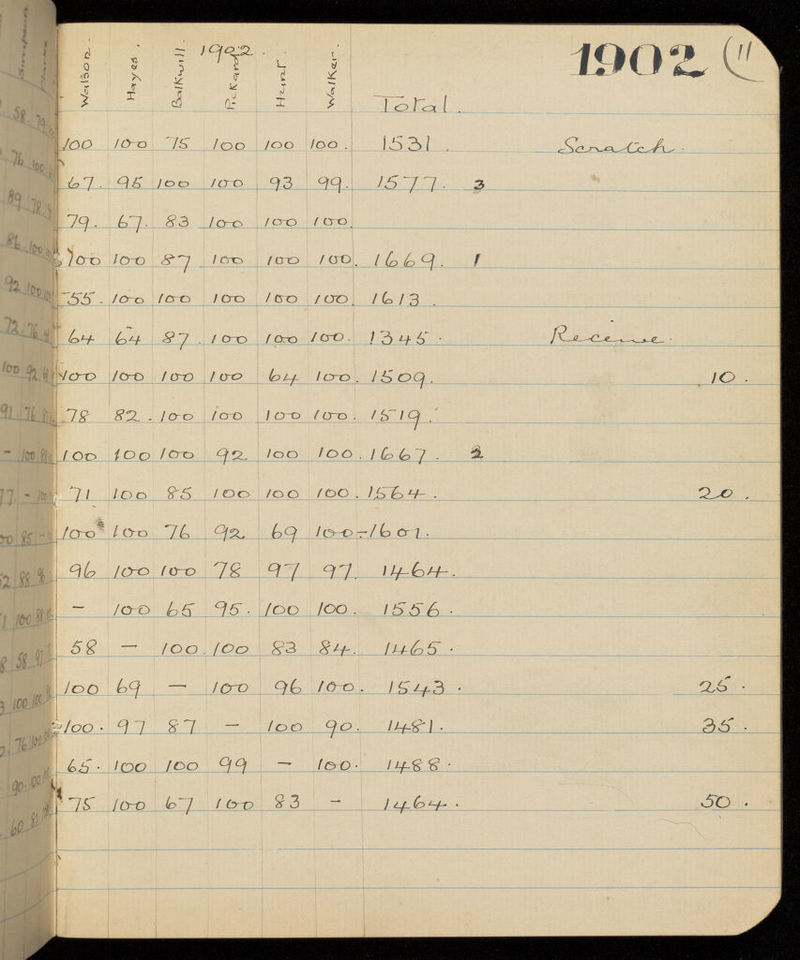 1902.
1902 (11
Watson. Hayes. Balkwill. Pickard Hunt. Walker. Total.
100 100 75 100 100 100. 1531. Scratch.
67. 95 100 100 93 99. 1577. 3
79. 67. 83 100 100 100.
100 100 87 100 100 100. 1669. 1
55. 100 100 100 100 100. 1613.
64 64 87. 100 100 100. 1345. Receive.
100 100 100 100 64 100. 1509. 10.
78 82. 100 100 100 100. 1519.
100 100 100 92 100 100. 1667. 2
71 100 85 100 100 100. 1564. 20.
100 100 76 92 69 100-1601.
96 100 100 78 97 97. 1464.
- 100 65 95. 100 100. 1556.
58 - 100. 100 83 84. 1465.
100 69 - 100 96 100. 1543. 25.
100. 97 87 - 100 90. 1481. 35.
65. 100 100 99 - 100. 1488.
75 100 67 100 83 - 1464. 50.